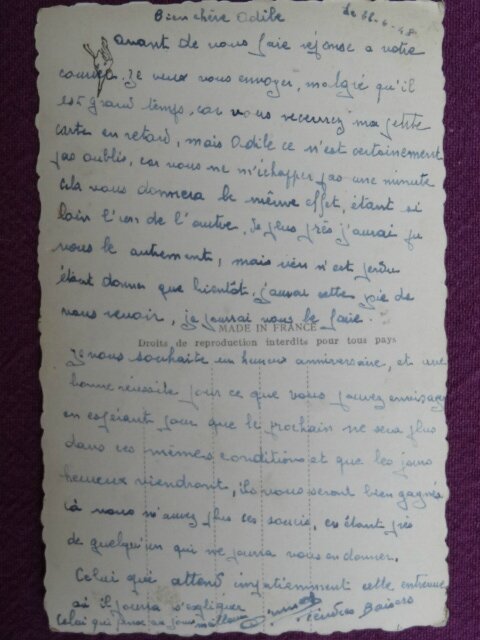 Bien chère Odile
le 22-6-48
avant de vous faie réponse a votre
courrier. Je veux vous envoyer, malgré qu'il
est grand temps, car vous recevrez ma petite
carte en retard, mais Odile ce n'est certainement
pas oublis, car vous ne m'échapper pas une minute
cela vous donnera le même effet, étant si
loin l'un de l'autre, de plus près j'aurai pu
vous le autrement, mais rien n'est perdu
étant donner que bientôt j'aurai cette joie de
vous revoir, je pourrai vous le faie.
MADE IN FRANCE
Droits de reproduction interdits pour tous pays
Je vous souhaite un heureux anniversaire, et une
bonne réussite pour ce que vous pouvez envisager
en espérant pour que le prochain ne sera plus
dans ces mêmes conditions et que les jours
heureux viendront, ils vous seront bien gagnés
là vous n'aurez plus ces soucis, en étant près
de quelqu'un qui ne pourra vous en donner.
Celui qui attend impatiemment cette entrevue
où il pourra s'expliquer
Celui qui pense au jour meilleur
tendres Baisers